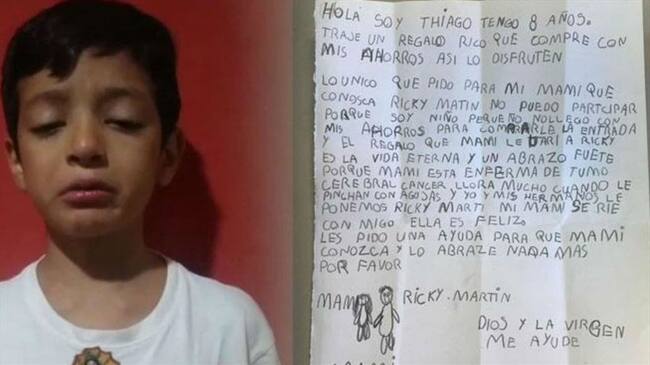 HOLA SOY THIAGO TENGO 8 AÑOS.
TRAJE UN REGALO RICO QUE COMPRE CON
MIS AHORROS ASI LO DISFRUTEN
LO UNICO QUE PIDO PARA MI MAMI QUE
CONOSCA RICKY MATIN NO PUEDO PARTCIPAR
PORQUE SOY NIÑO PEQUEÑO NOLLEGO CON
MIS AHORROS PARA LA ENTRADA
Y EL REGALO QUE MAMI LE DARI A RICKY
ES LA VIDA ETERNA Y UN ABRAZO FUETE
PORQUE MAMI ESTA ENFERMA DE TUMO
CEREBRAL CANCER LLORA MUCHO CUANDO LE
PINCHAN CON AGOJAS Y YO Y MIS HERMANOS LE
PONEMOS RICKY MARTI MI MAMI SE RIE
CON MIGO ELLA ES FELIZ.
LES PIDO UNA AYUDA PARA QUE MAMI
CONOZCA Y LO ABRAZE NADA MAS
POR FAVOR
MAMI RICKY.MARTIN
DIOS Y LA VIRGEN
ME AYUDE